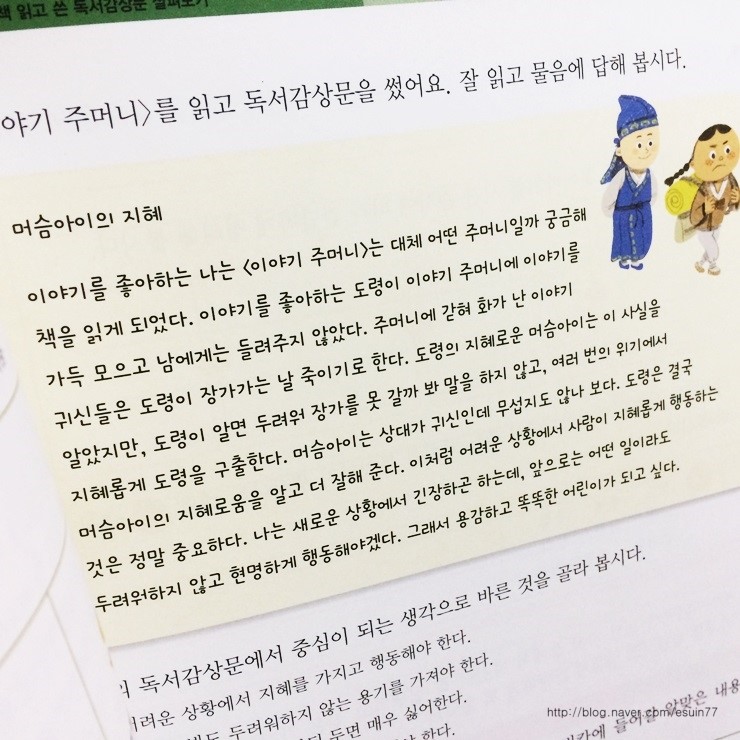 책 읽고 쓴 독서감상문 살펴보기
야기 주머니〉를 읽고 독서감상문을 썼어요. 잘 읽고 물음에 답해 봅시다.
머슴아이의 지혜
이야기를 좋아하는 나는 〈이야기 주머니〉는 대체 어떤 주머니일까 궁금해
책을 읽게 되었다. 이야기를 좋아하는 도령이 이야기 주머니에 이야기를
가득 모으고 남에게는 들려주지 않았다. 주머니에 갇혀 화가 난 이야기
귀신들은 도령이 장가가는 날 죽이기로 한다. 도령의 지혜로운 머슴아이는 이 사실을
알았지만, 도령이 알면 두려워 장가를 못 갈까 봐 말을 하지 않고, 여러 번의 위기에서
지혜롭게 도령을 구출한다. 머슴아이는 상대가 귀신인데 무섭지도 않나 보다. 도령은 결국
머슴아이의 지혜로움을 알고 더 잘해 준다. 이처럼 어려운 상황에서 사람이 지혜롭게 행동하는
것은 정말 중요하다. 나는 새로운 상황에서 긴장하곤 하는데, 앞으로는 어떤 일이라도
두려워하지 않고 현명하게 행동해야겠다. 그래서 용감하고 똑똑한 어린이가 되고 싶다.
독서감상문에서 중심이 되는 생각으로 바른 것을 골라 봅시다.
어려운 상황에서 지혜를 가지고 행동해야 한다.
두려워하지 않는 용기를 가져야 한다.
두면 매우 싫어한다.
들어갈 알맞은 내용
http://blog.naver.com/esuin77